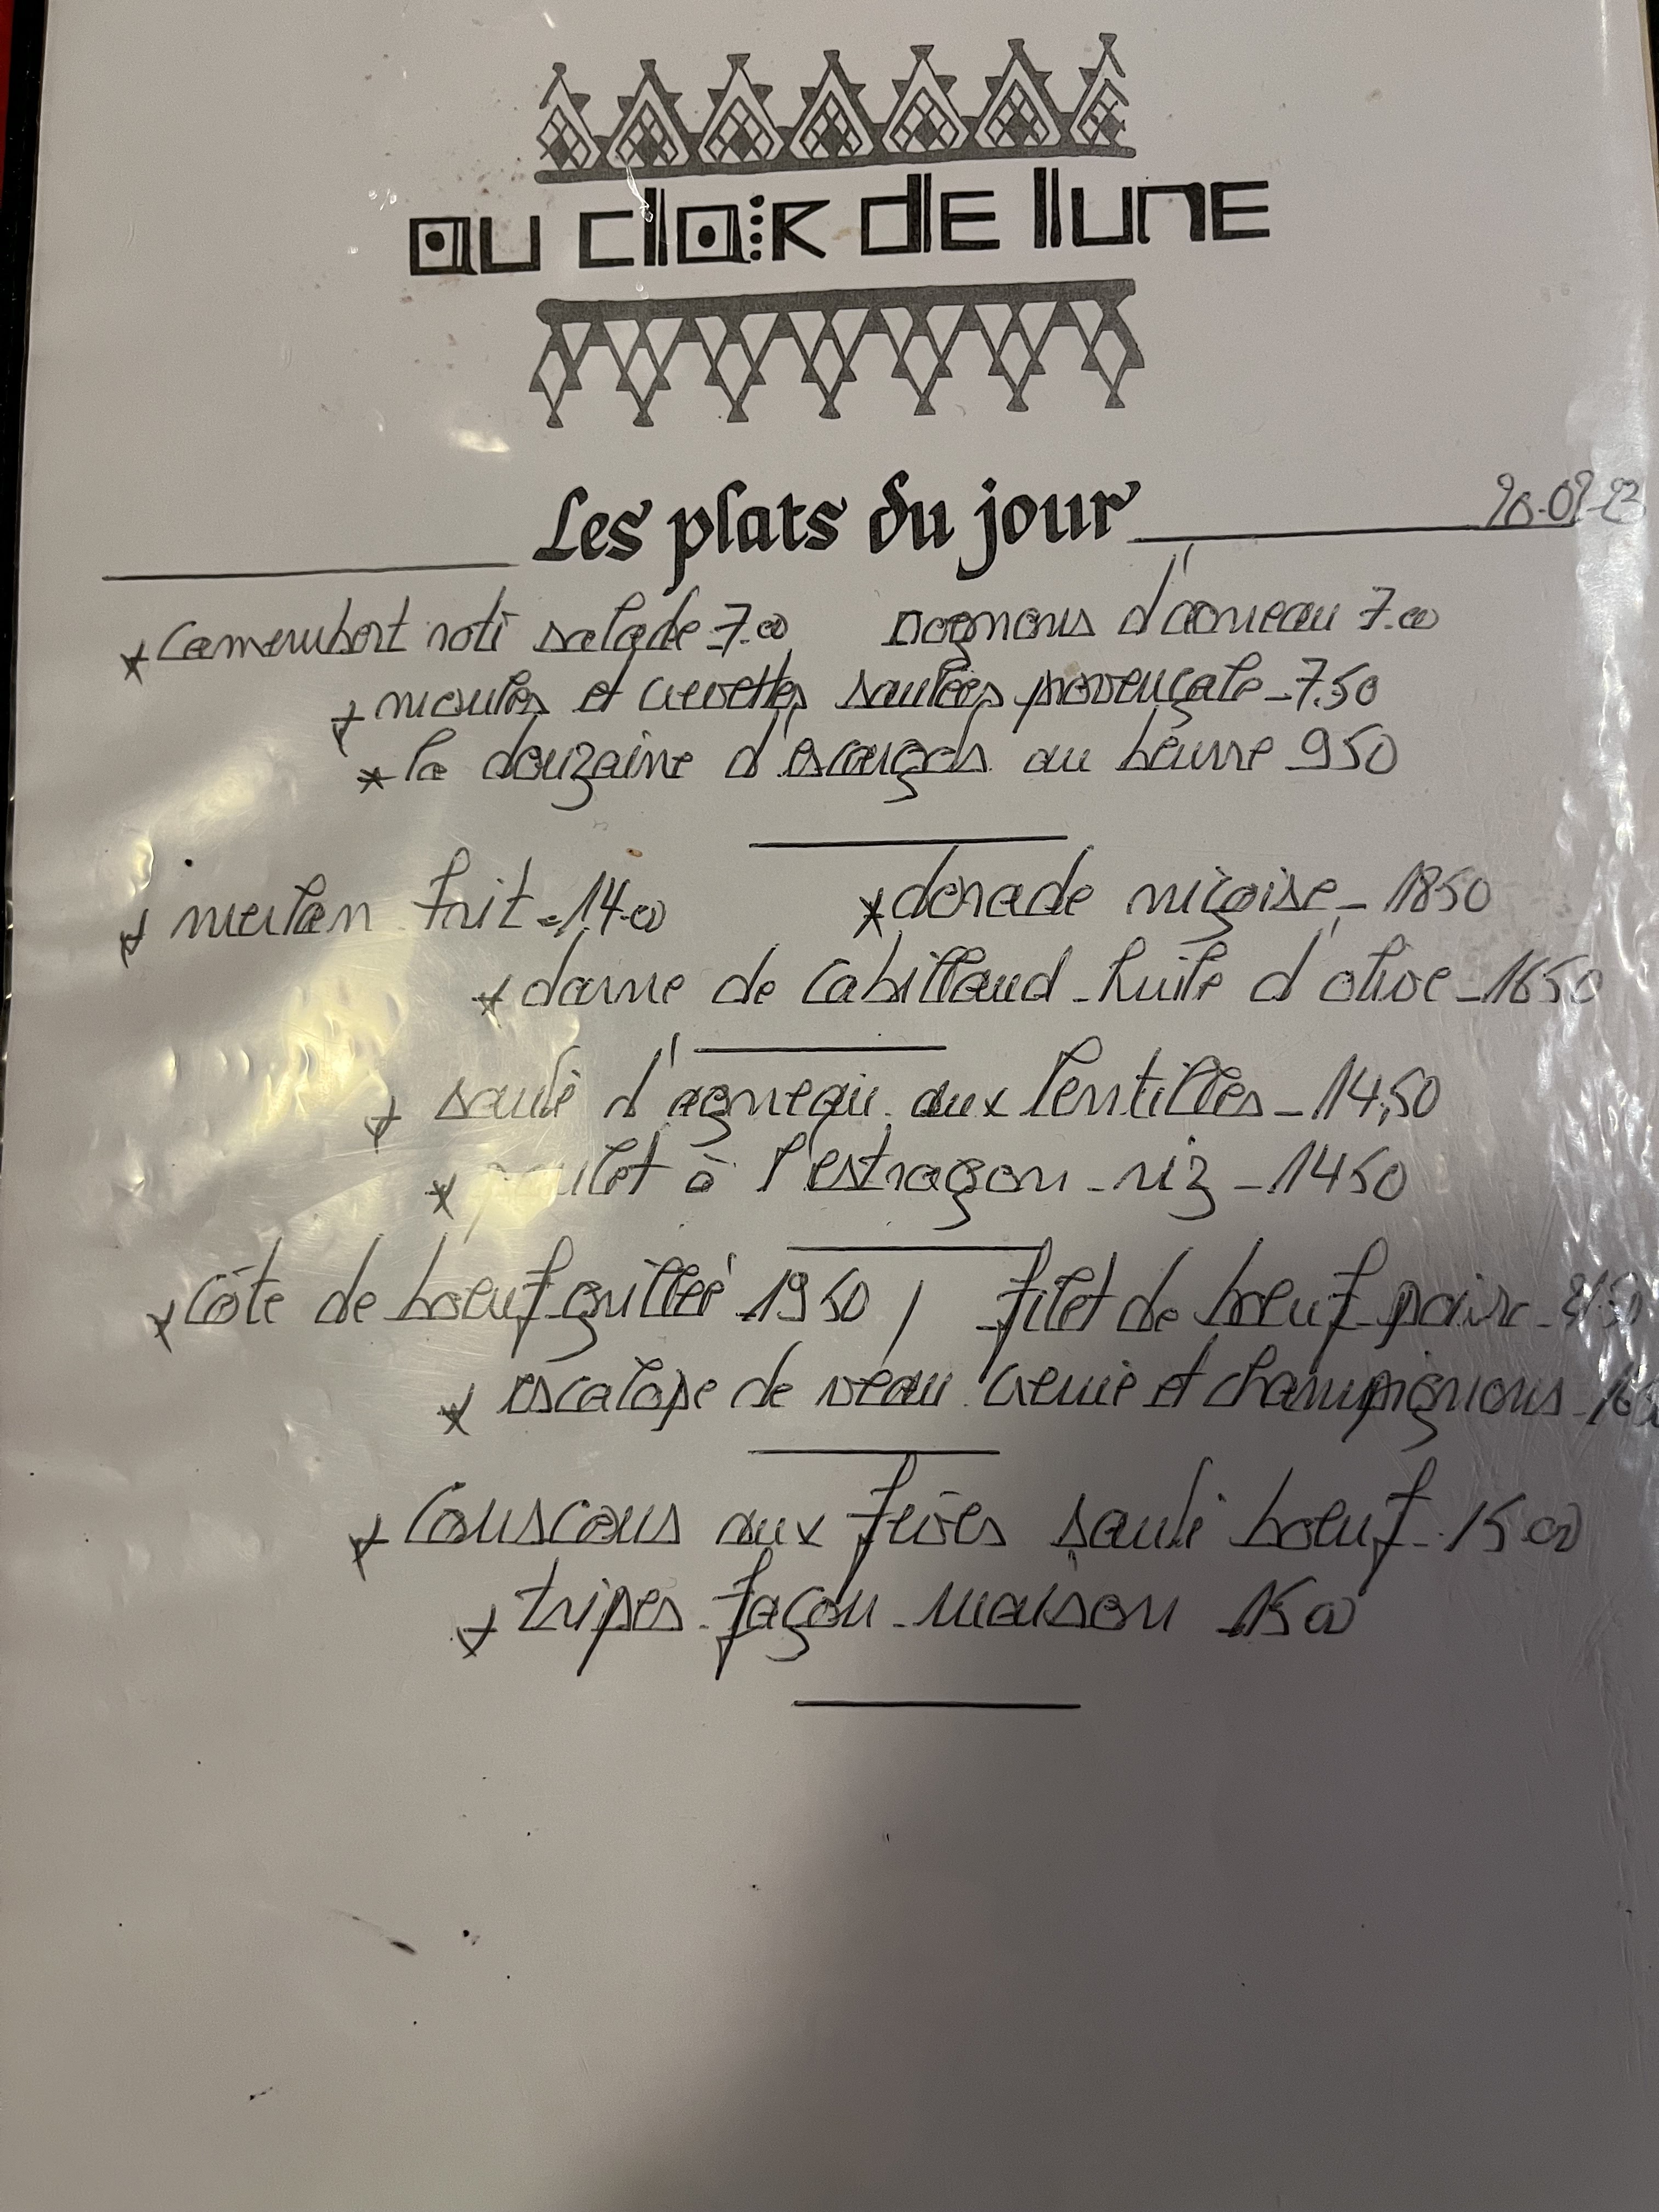 au clair de lune
Les plats du jour
* Camembert roti salade 7.00 rognons d'agneau 7.00
* moules et crevettes sautées provençale - 7.50
* la douzaine d'escargots au beurre 950
* merlan frit - 14.00 * dorade niçoise - 1850
* darne de cabillaud - huile d'olive - 1650
* sauté d'agneau aux lentilles - 14,50
* poulet à l'estragon - riz - 1450
* Côte de boeuf grillée 1950 / filet de boeuf poivre
* escalope de veau crème et champignons
* Couscous aux fèves sauté boeuf - 1500
* tripes - façon - maison - 1500